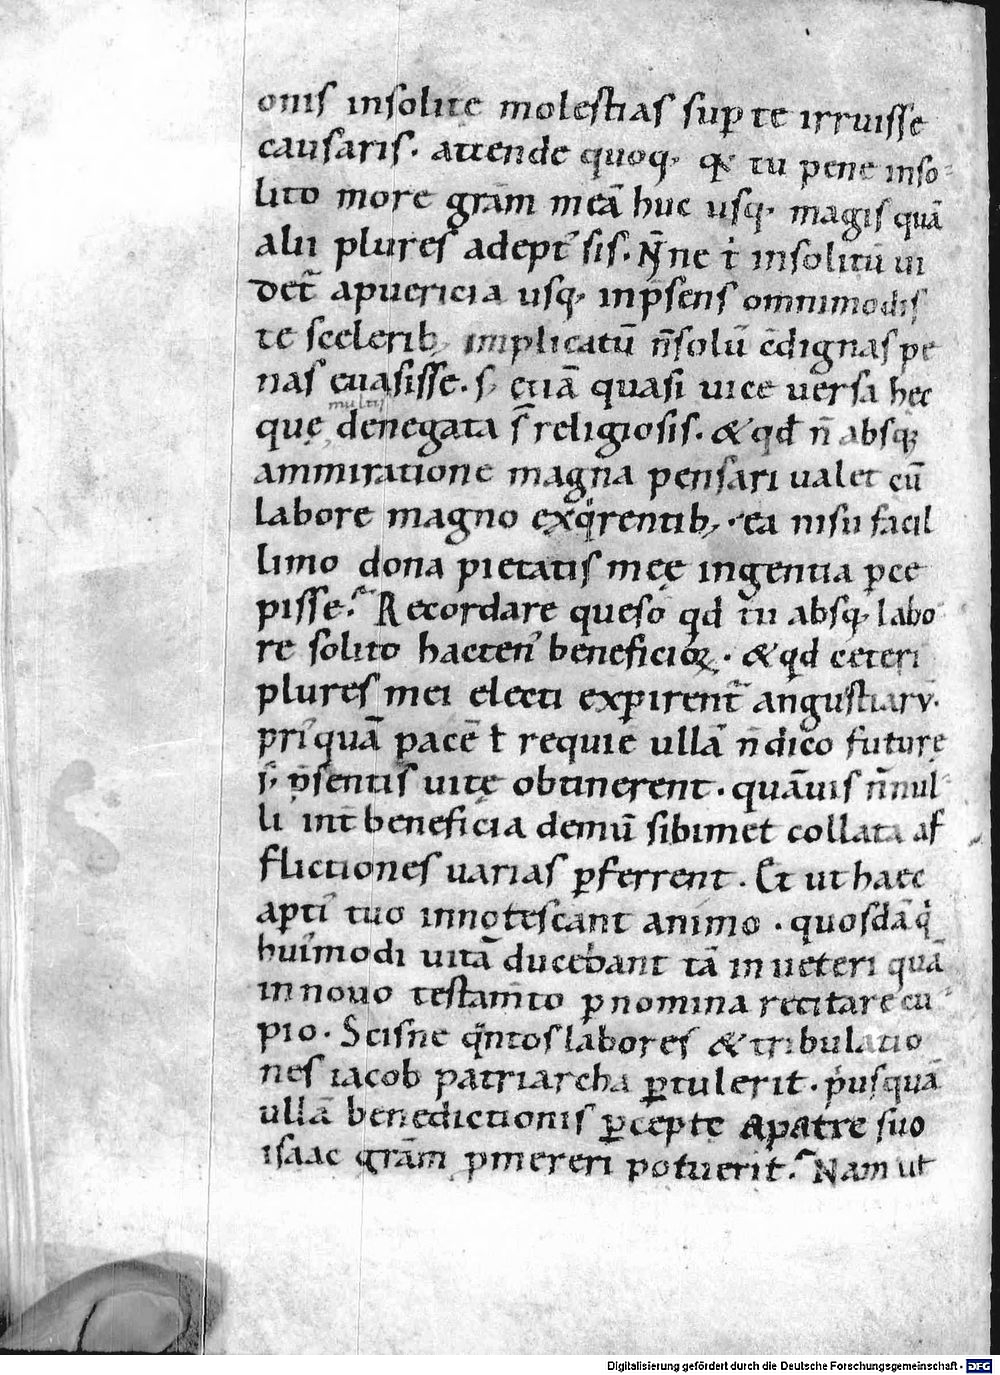 onis insolitę molestias sup̄ te irruisse
causaris. attende quoq; qd̄ tu pene inso-
lito more gr̄am meā huc usq; magis quā
alii plures adept' sis. Nōne t̄ insolitū ui
det᷑ apuericia usq; inp̄sens omnimodis
te scelerib; implicatū n̄solū c̄dignas pe
nas euasisse. s; etiā quasi uice uersa hec
quę multis denegata s̄ religiosis. & qd̄ n̄ absq;
ammiratione magna pensari ualet cū
labore magno exqͥrentib; ea nisu facil
limo dona pietatis meę ingentia ꝑce
pisse? Recordare queso qd̄ tu absq; labo
re solito hacten' beneficioꝝ. & qd̄ ceteri
plures mei electi exꝑirent᷑ angustiarū.
pri'quā pacē t̄ requiē ullā n̄ dico futurę
s; p̄sentis uitę obtinerent. quāuis n̄nul-
li int̄ beneficia demū sibimet collata af
flictiones uarias ꝑferrent. Et ut haec
apti' tuo innotescant animo. quosdā qͥ
hui'modi uitā ducebant tā in ueteri quā
in nouo testam̄to ꝑ nomina recitare cu-
pio. Scisne qͣntos labores & tribulatio
nes iacob patriarcha ꝑtulerit. pͥusquā
ullā benedictionis ꝑceptę apatre suo
isaac gr̄am ꝓmereri potuerit? Nam ut
Digitalisierung gefördert durch die Deutsche Forschungsgemeinschaft - DFG